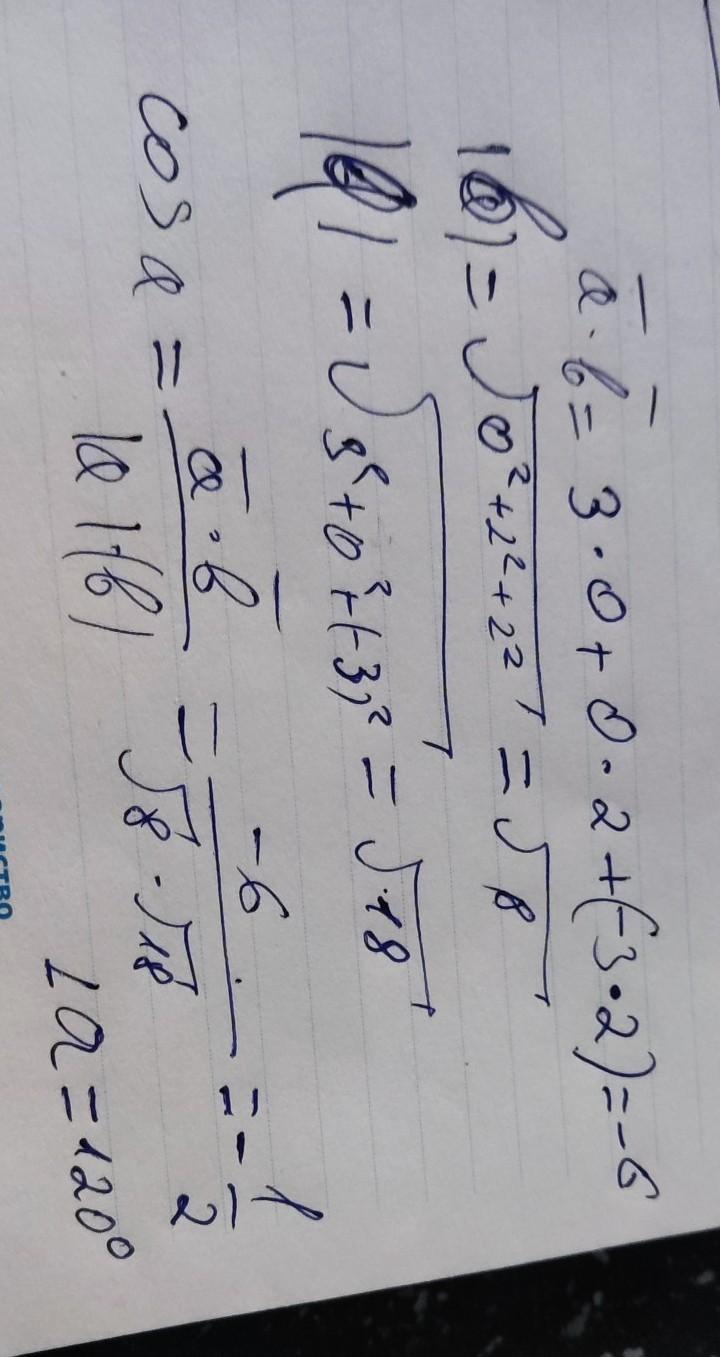 a̅·b̅ = 3·0 + 0·2 + (-3·2) = -6
|b| = √(0²+2²+2²) = √8
|a| = √(3²+0²+(-3)² = √18
cos a = a̅·b̅ / |a|·|b| = -6 / √8·√18 = -1/2
∠a = 120°